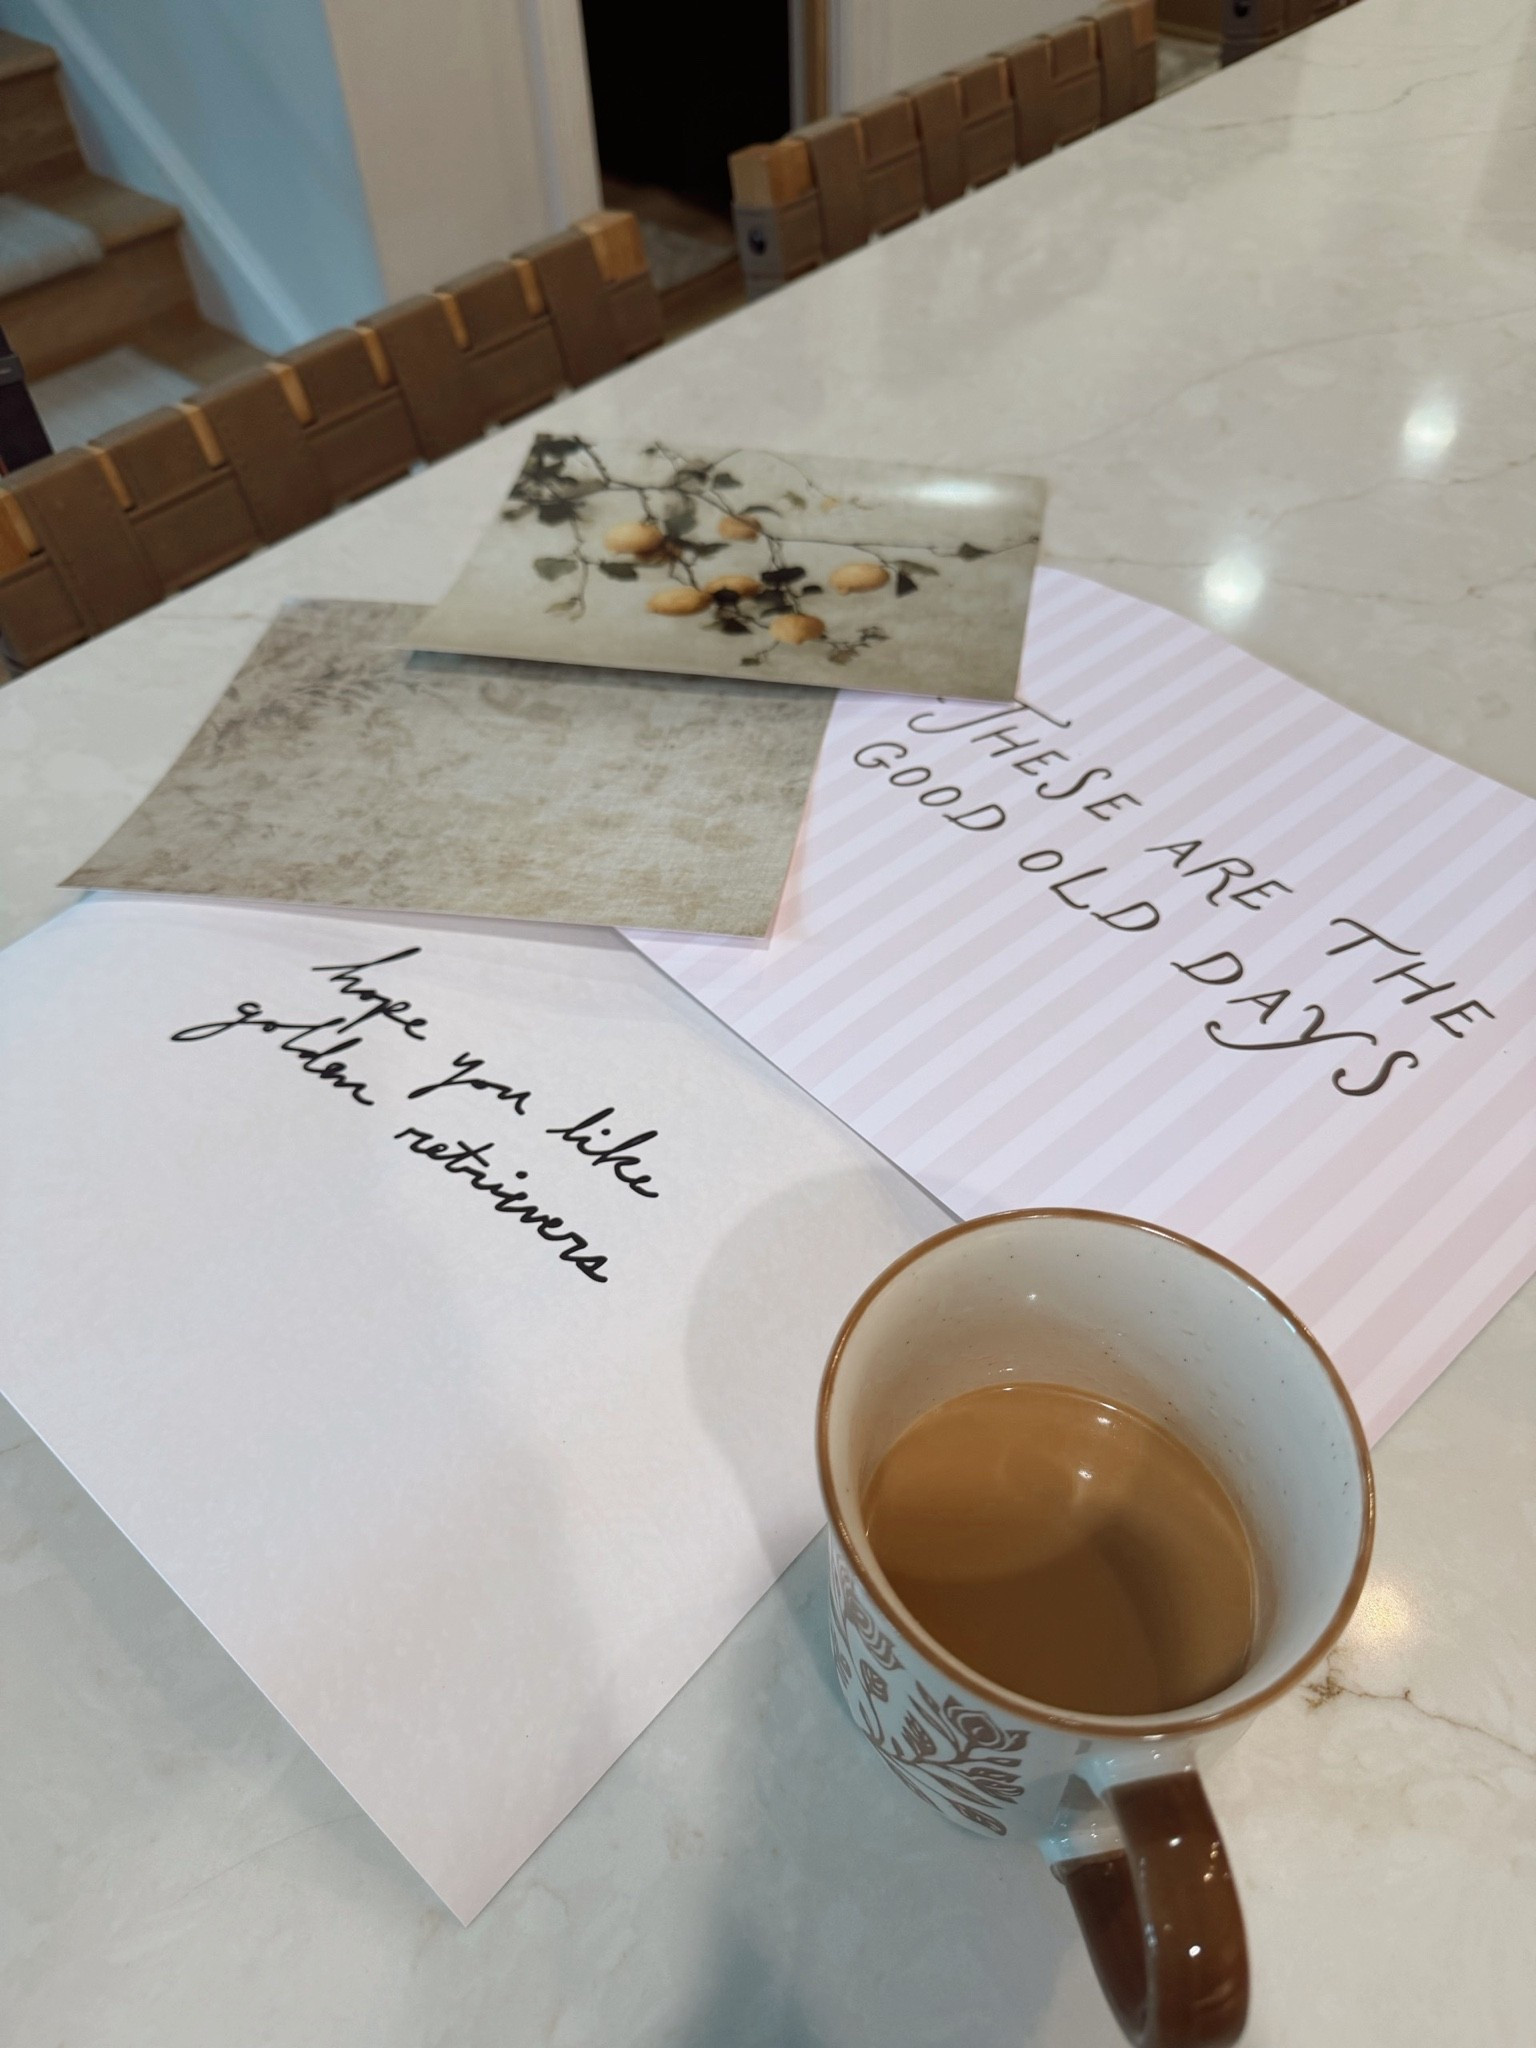 THESE ARE THE
GOOD OLD DAYS
hope you like
golden retrievers